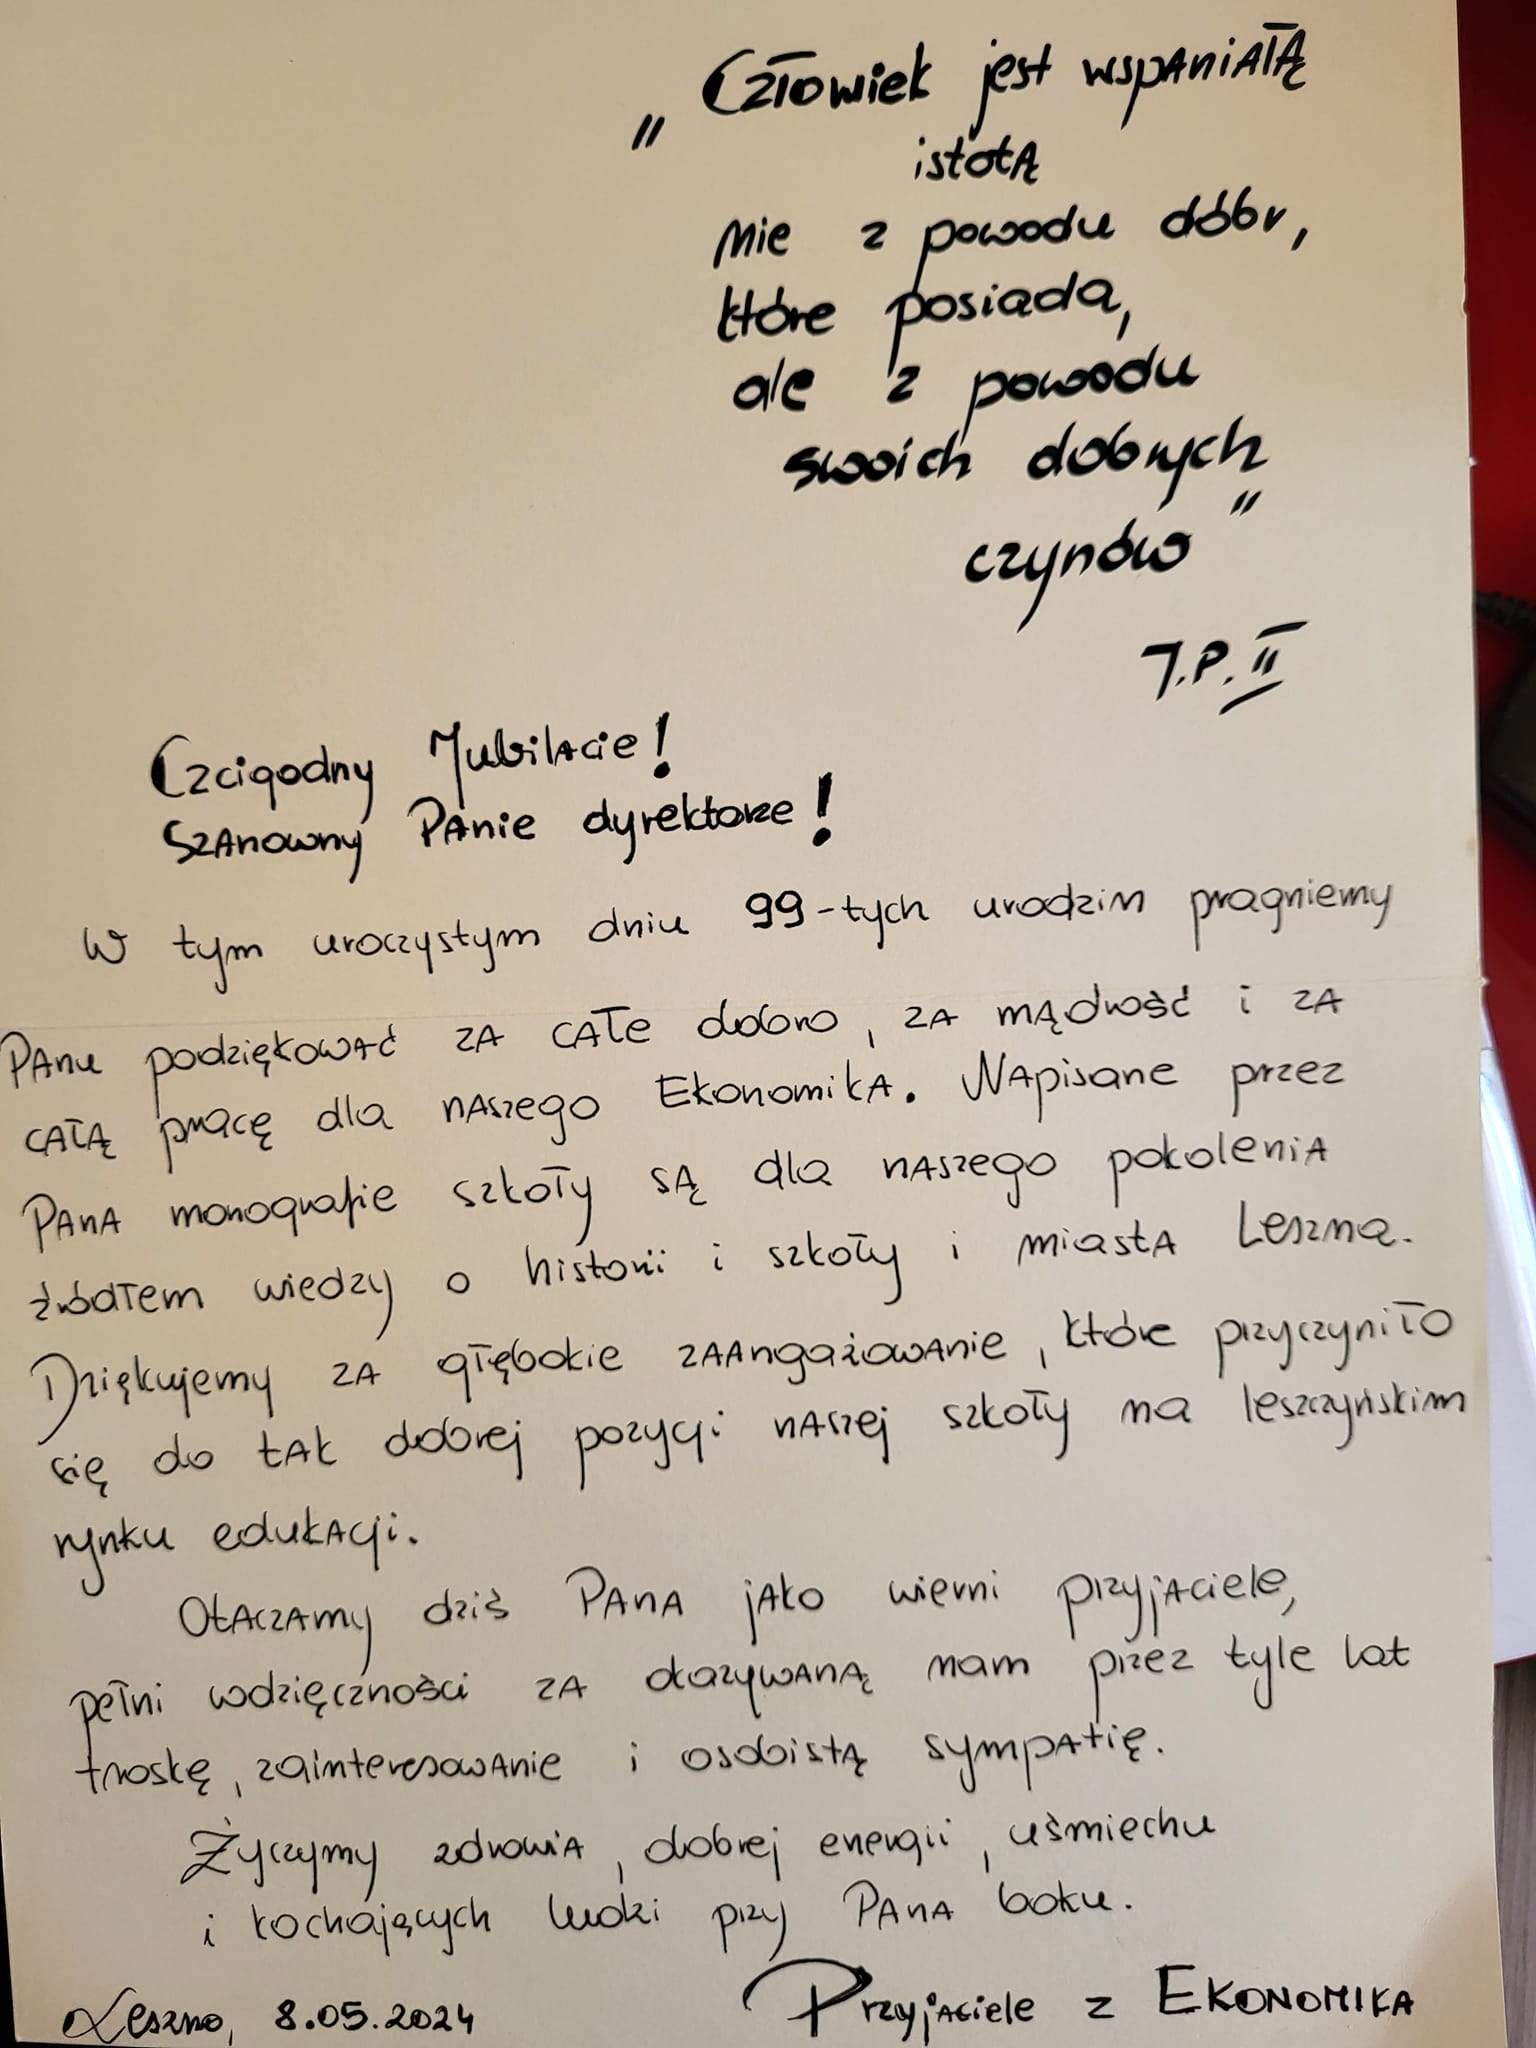 „Człowiek jest wspaniałą
istotą
nie z powodu dóbr,
które posiada,
ale z powodu
swoich dobrych
czynów"
J.P. II
Czcigodny Jubilacie!
Szanowny Panie dyrektorze!
W tym uroczystym dniu 99-tych urodzin pragniemy
Panu podziękować za całe dobro, za mądrość i za
całą pracę dla naszego Ekonomika. Napisane przez
Pana monografie szkoły są dla naszego pokolenia
źródłem wiedzy o historii i szkoły i miasta Leszna.
Dziękujemy za głębokie zaangażowanie, które przyczyniło
się do tak dobrej pozycji naszej szkoły na leszczyńskim
rynku edukacji.
Otaczamy dziś Pana jako wierni przyjaciele,
pełni wdzięczności za okazywaną nam przez tyle lat
troskę, zainteresowanie i osobistą sympatię.
Życzymy zdrowia, dobrej energii, uśmiechu
i kochających ludzi przy Pana boku.
Przyjaciele z EKONOMIKA
Leszno, 8.05.2024